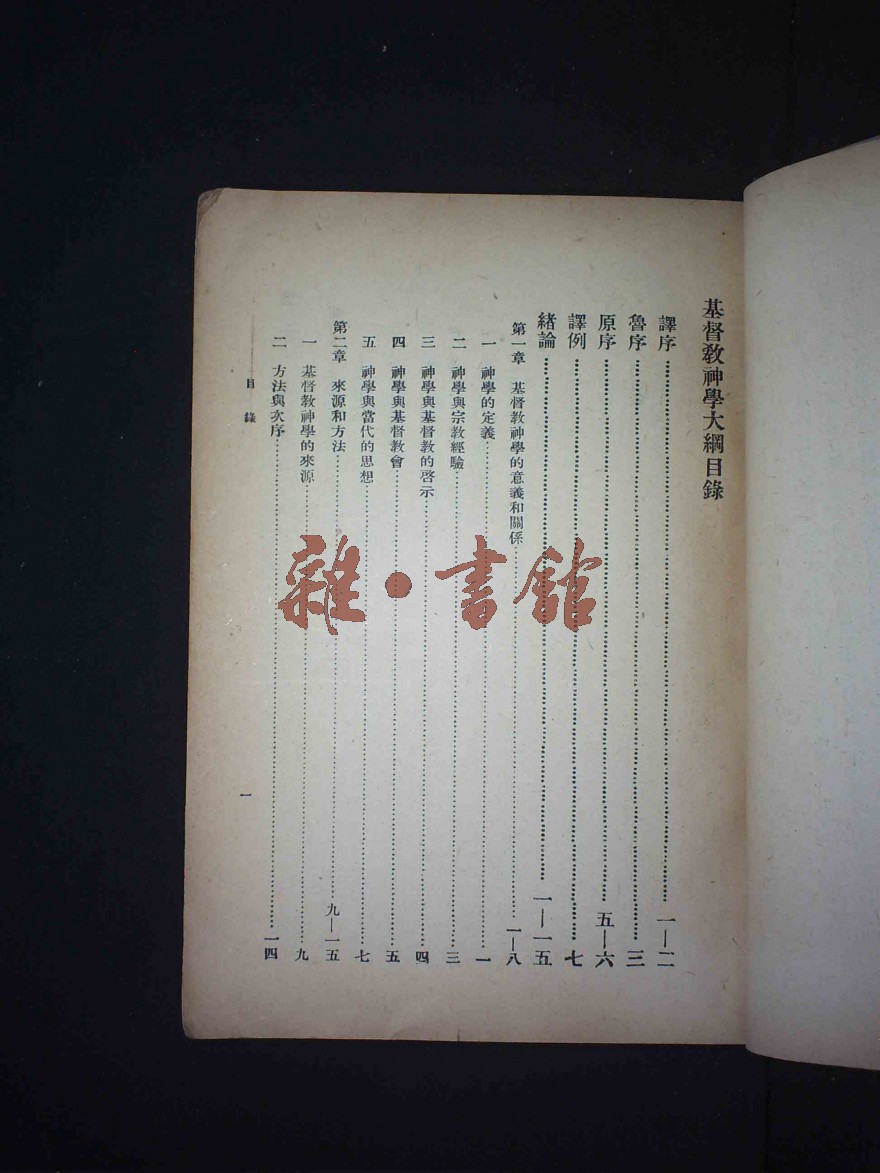 基督教神學大綱目錄
譯序……一—二
魯序……三
原序……五—六
譯例……七
緒論……一—一五
第一章 基督教神學的意義和關係……一—八
一 神學的定義……一
二 神學與宗教經驗……三
三 神學與基督教的啓示……四
四 神學與基督教會……五
五 神學與當代的思想……七
第二章 來源和方法……九—一五
一 基督教神學的來源……九
二 方法與次序……一四
目錄
一
雜·書館